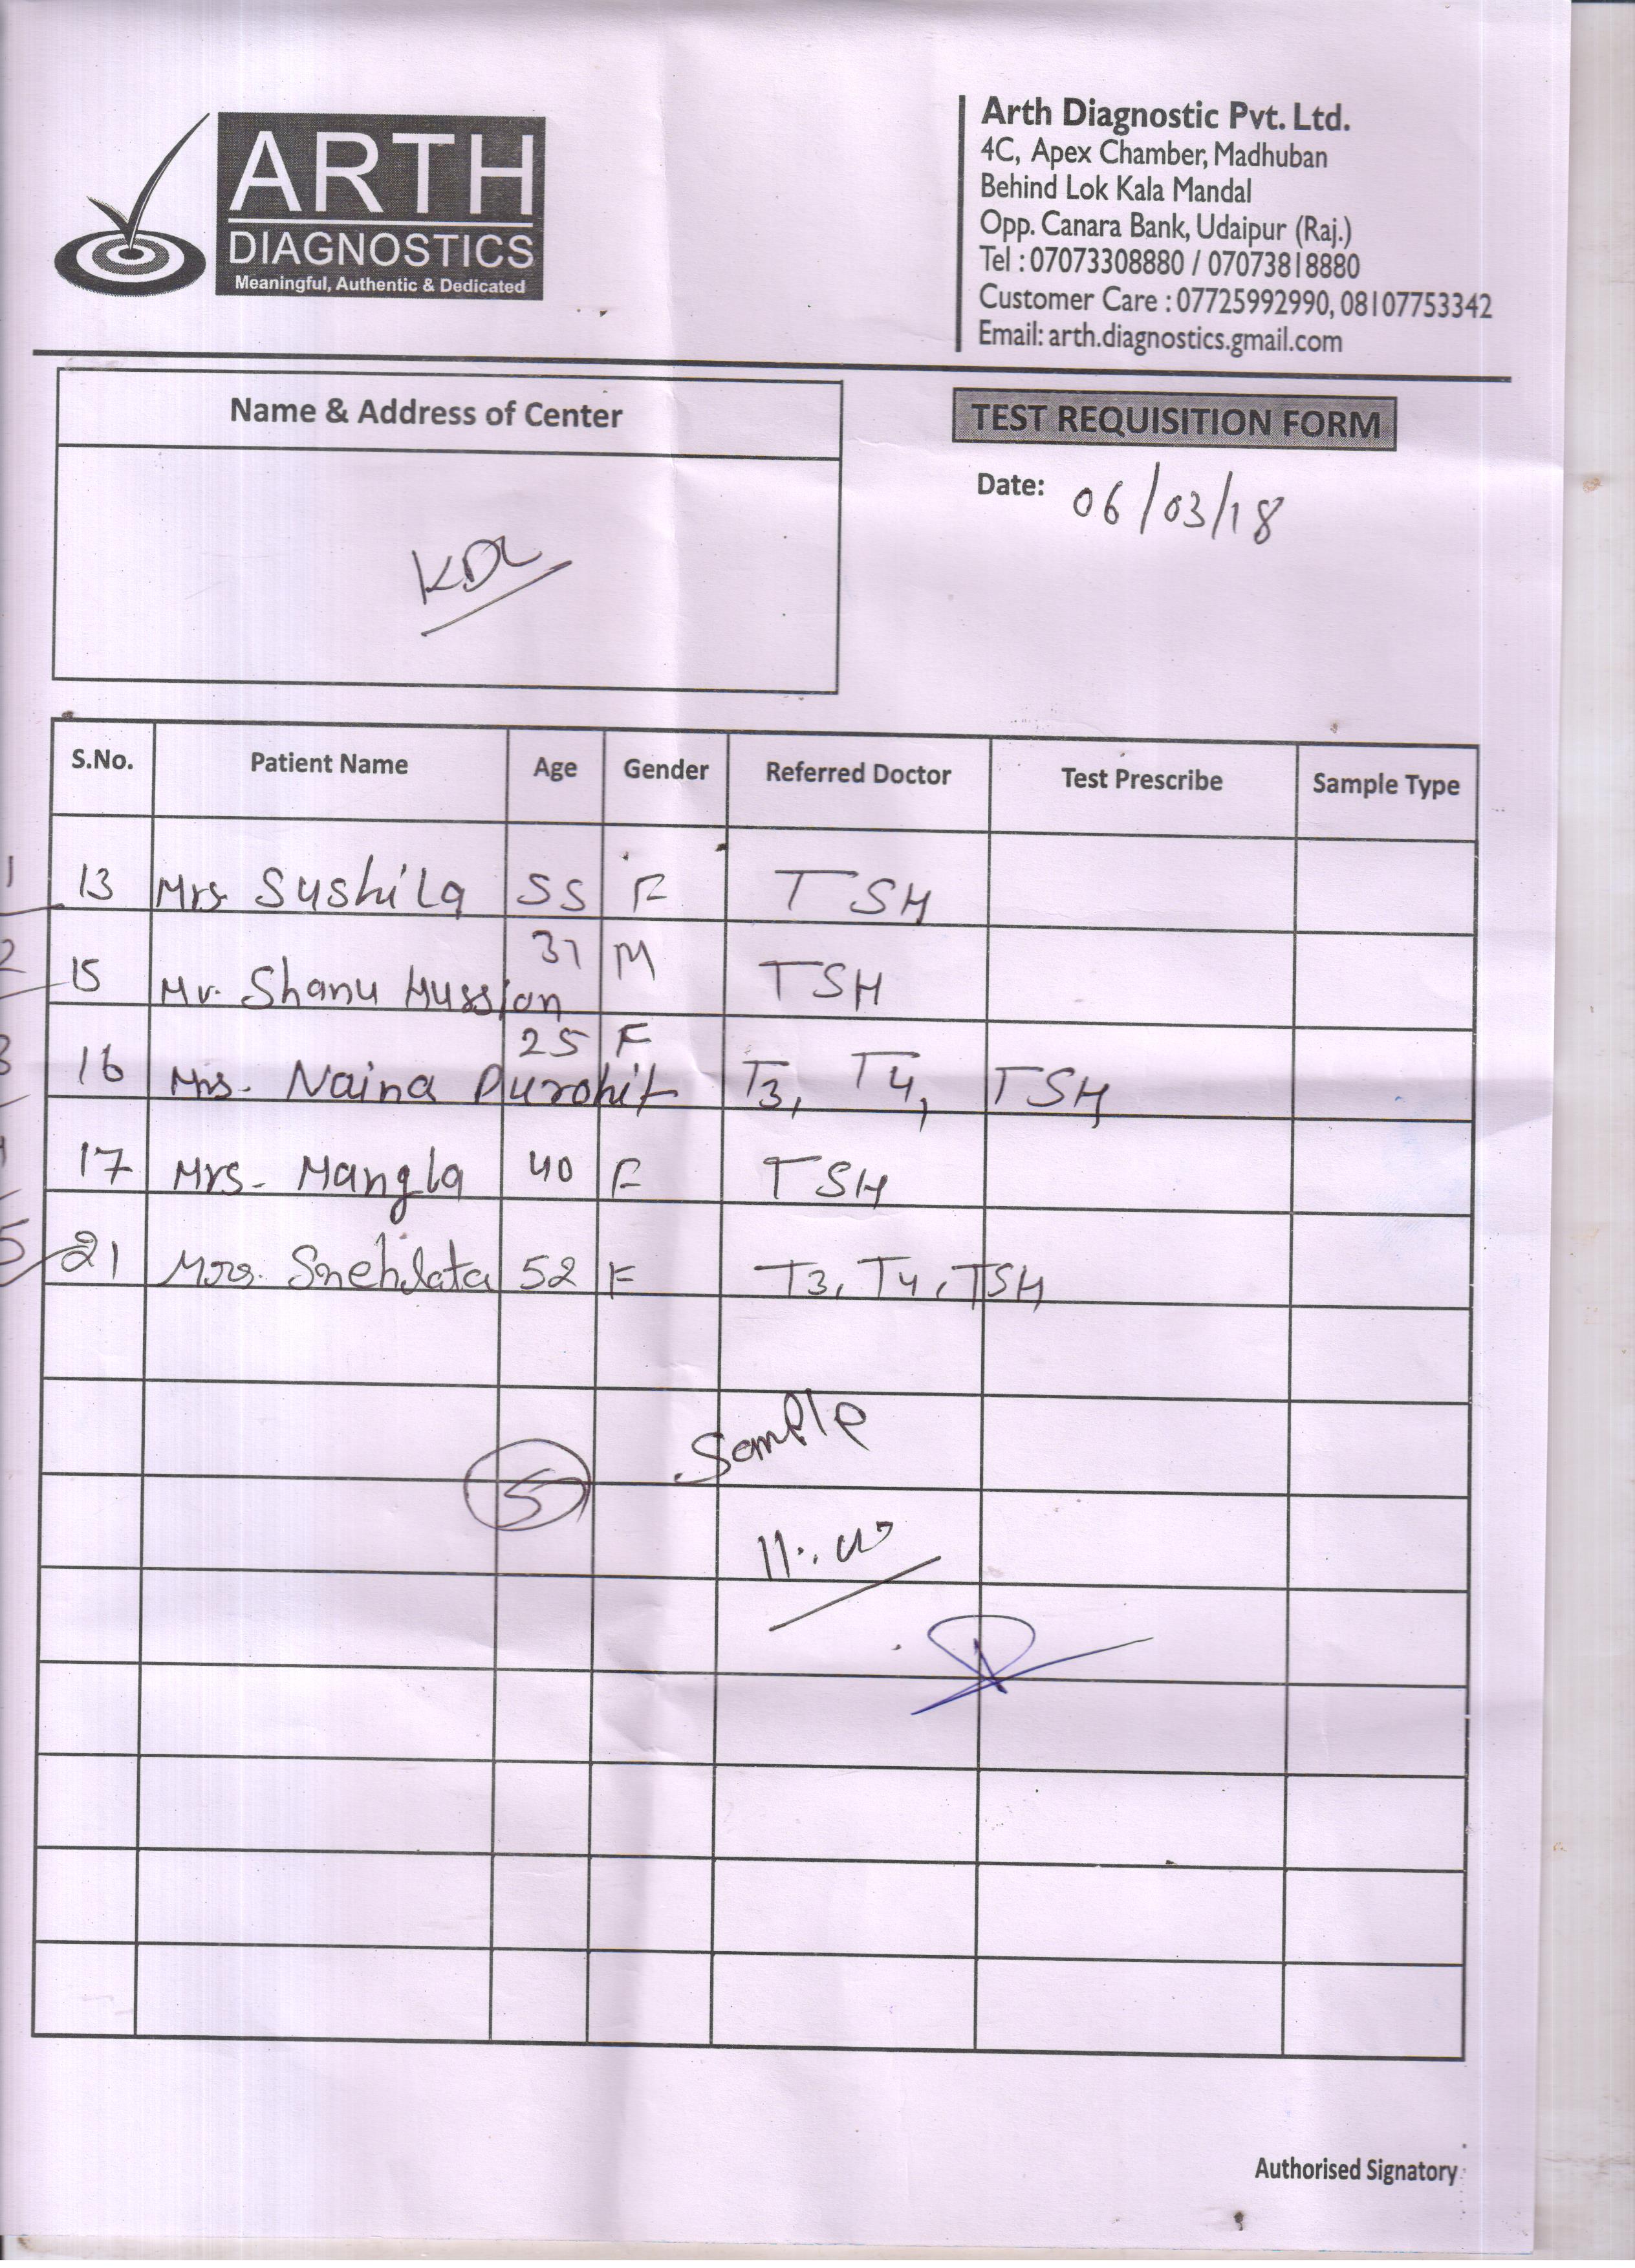 ARTH
DIAGNOSTICS
Meaningful, Authentic & Dedicated
Arth Diagnostic Pvt. Ltd.
4C, Apex Chamber, Madhuban
Behind Lok Kala Mandal
Opp. Canara Bank, Udaipur (Raj.)
Tel : 07073308880 / 07073818880
Customer Care : 07725992990, 08107753342
Email: arth.diagnostics.gmail.com
Name & Address of Center
KDL
TEST REQUISITION FORM
Date: 06/03/18
S.No. Patient Name Age Gender Referred Doctor Test Prescribe Sample Type
1 13 Mrs. Sushila 55 F TSH
2 15 Mr. Shanu Hussian 31 M TSH
3 16 Mrs. Naina Purohit 25 F T3, T4, TSH
4 17 Mrs. Mangla 40 F TSH
5 21 Mrs. Snehlata 52 F T3, T4, TSH
5 Sample
Authorised Signatory